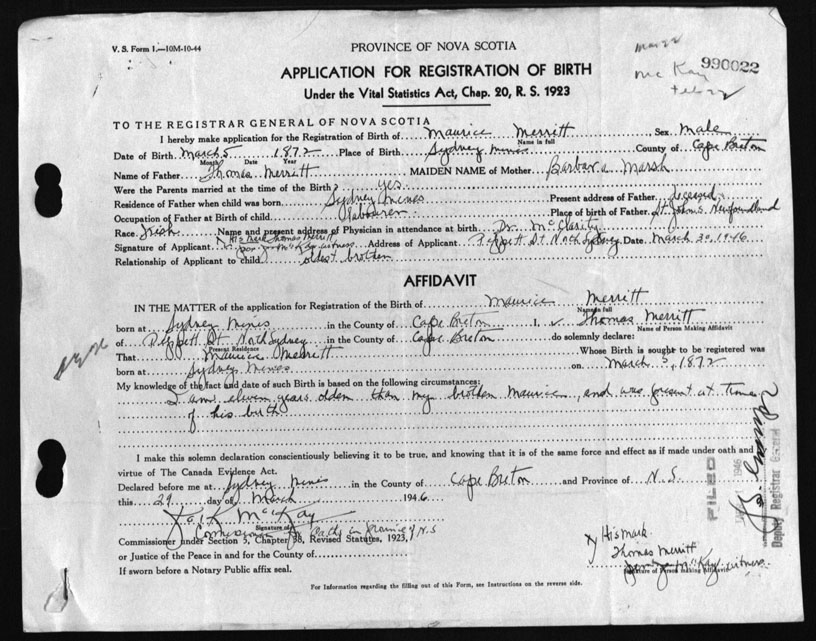 V. S. Form 1.—10M-10-44
PROVINCE OF NOVA SCOTIA
990022
Mc Kay
APPLICATION FOR REGISTRATION OF BIRTH
Under the Vital Statistics Act, Chap. 20, R. S. 1923
TO THE REGISTRAR GENERAL OF NOVA SCOTIA
I hereby make application for the Registration of Birth of Maurice Merritt, Sex Male
Name in full
Date of Birth March 5 1872 Place of Birth Sydney Mines County of Cape Breton
Month Date Year
Name of Father Thomas Merritt MAIDEN NAME of Mother Barbara Marsh
Were the Parents married at the time of the Birth? yes
Residence of Father when child was born Sydney Mines Present address of Father deceased
Occupation of Father at Birth of child labourer Place of birth of Father St. Johns Newfoundland
Race Irish Name and present address of Physician in attendance at birth Dr. McClarity
Signature of Applicant X His Mark Thomas Merritt witness Address of Applicant Peppett St. North Sydney Date March 30, 1946
Relationship of Applicant to child oldest brother
AFFIDAVIT
IN THE MATTER of the application for Registration of the Birth of Maurice Merritt
Name in full
born at Sydney Mines in the County of Cape Breton I, Thomas Merritt
Name of Person Making Affidavit
of Peppett St. North Sydney in the County of Cape Breton do solemnly declare:
Present Residence
That Maurice Merritt Whose Birth is sought to be registered was
born at Sydney Mines on March 5, 1872
My knowledge of the fact and date of such Birth is based on the following circumstances:
I am eleven years older than my brother Maurice, and was present at time
of his birth
I make this solemn declaration conscientiously believing it to be true, and knowing that it is of the same force and effect as if made under oath and
virtue of The Canada Evidence Act.
Declared before me at Sydney Mines in the County of Cape Breton and Province of N. S.
this 29 day of March 1946
McKay
Signature of
Commissioner under Section 3, Chapter 38, Revised Statutes, 1923,
or Justice of the Peace in and for the County of
If sworn before a Notary Public affix seal.
X His Mark
Thomas Merritt
McKay witness
Signature of Person Making Affidavit
FILED
1946
Deputy Registrar General
For Information regarding the filling out of this Form, see Instructions on the reverse side.